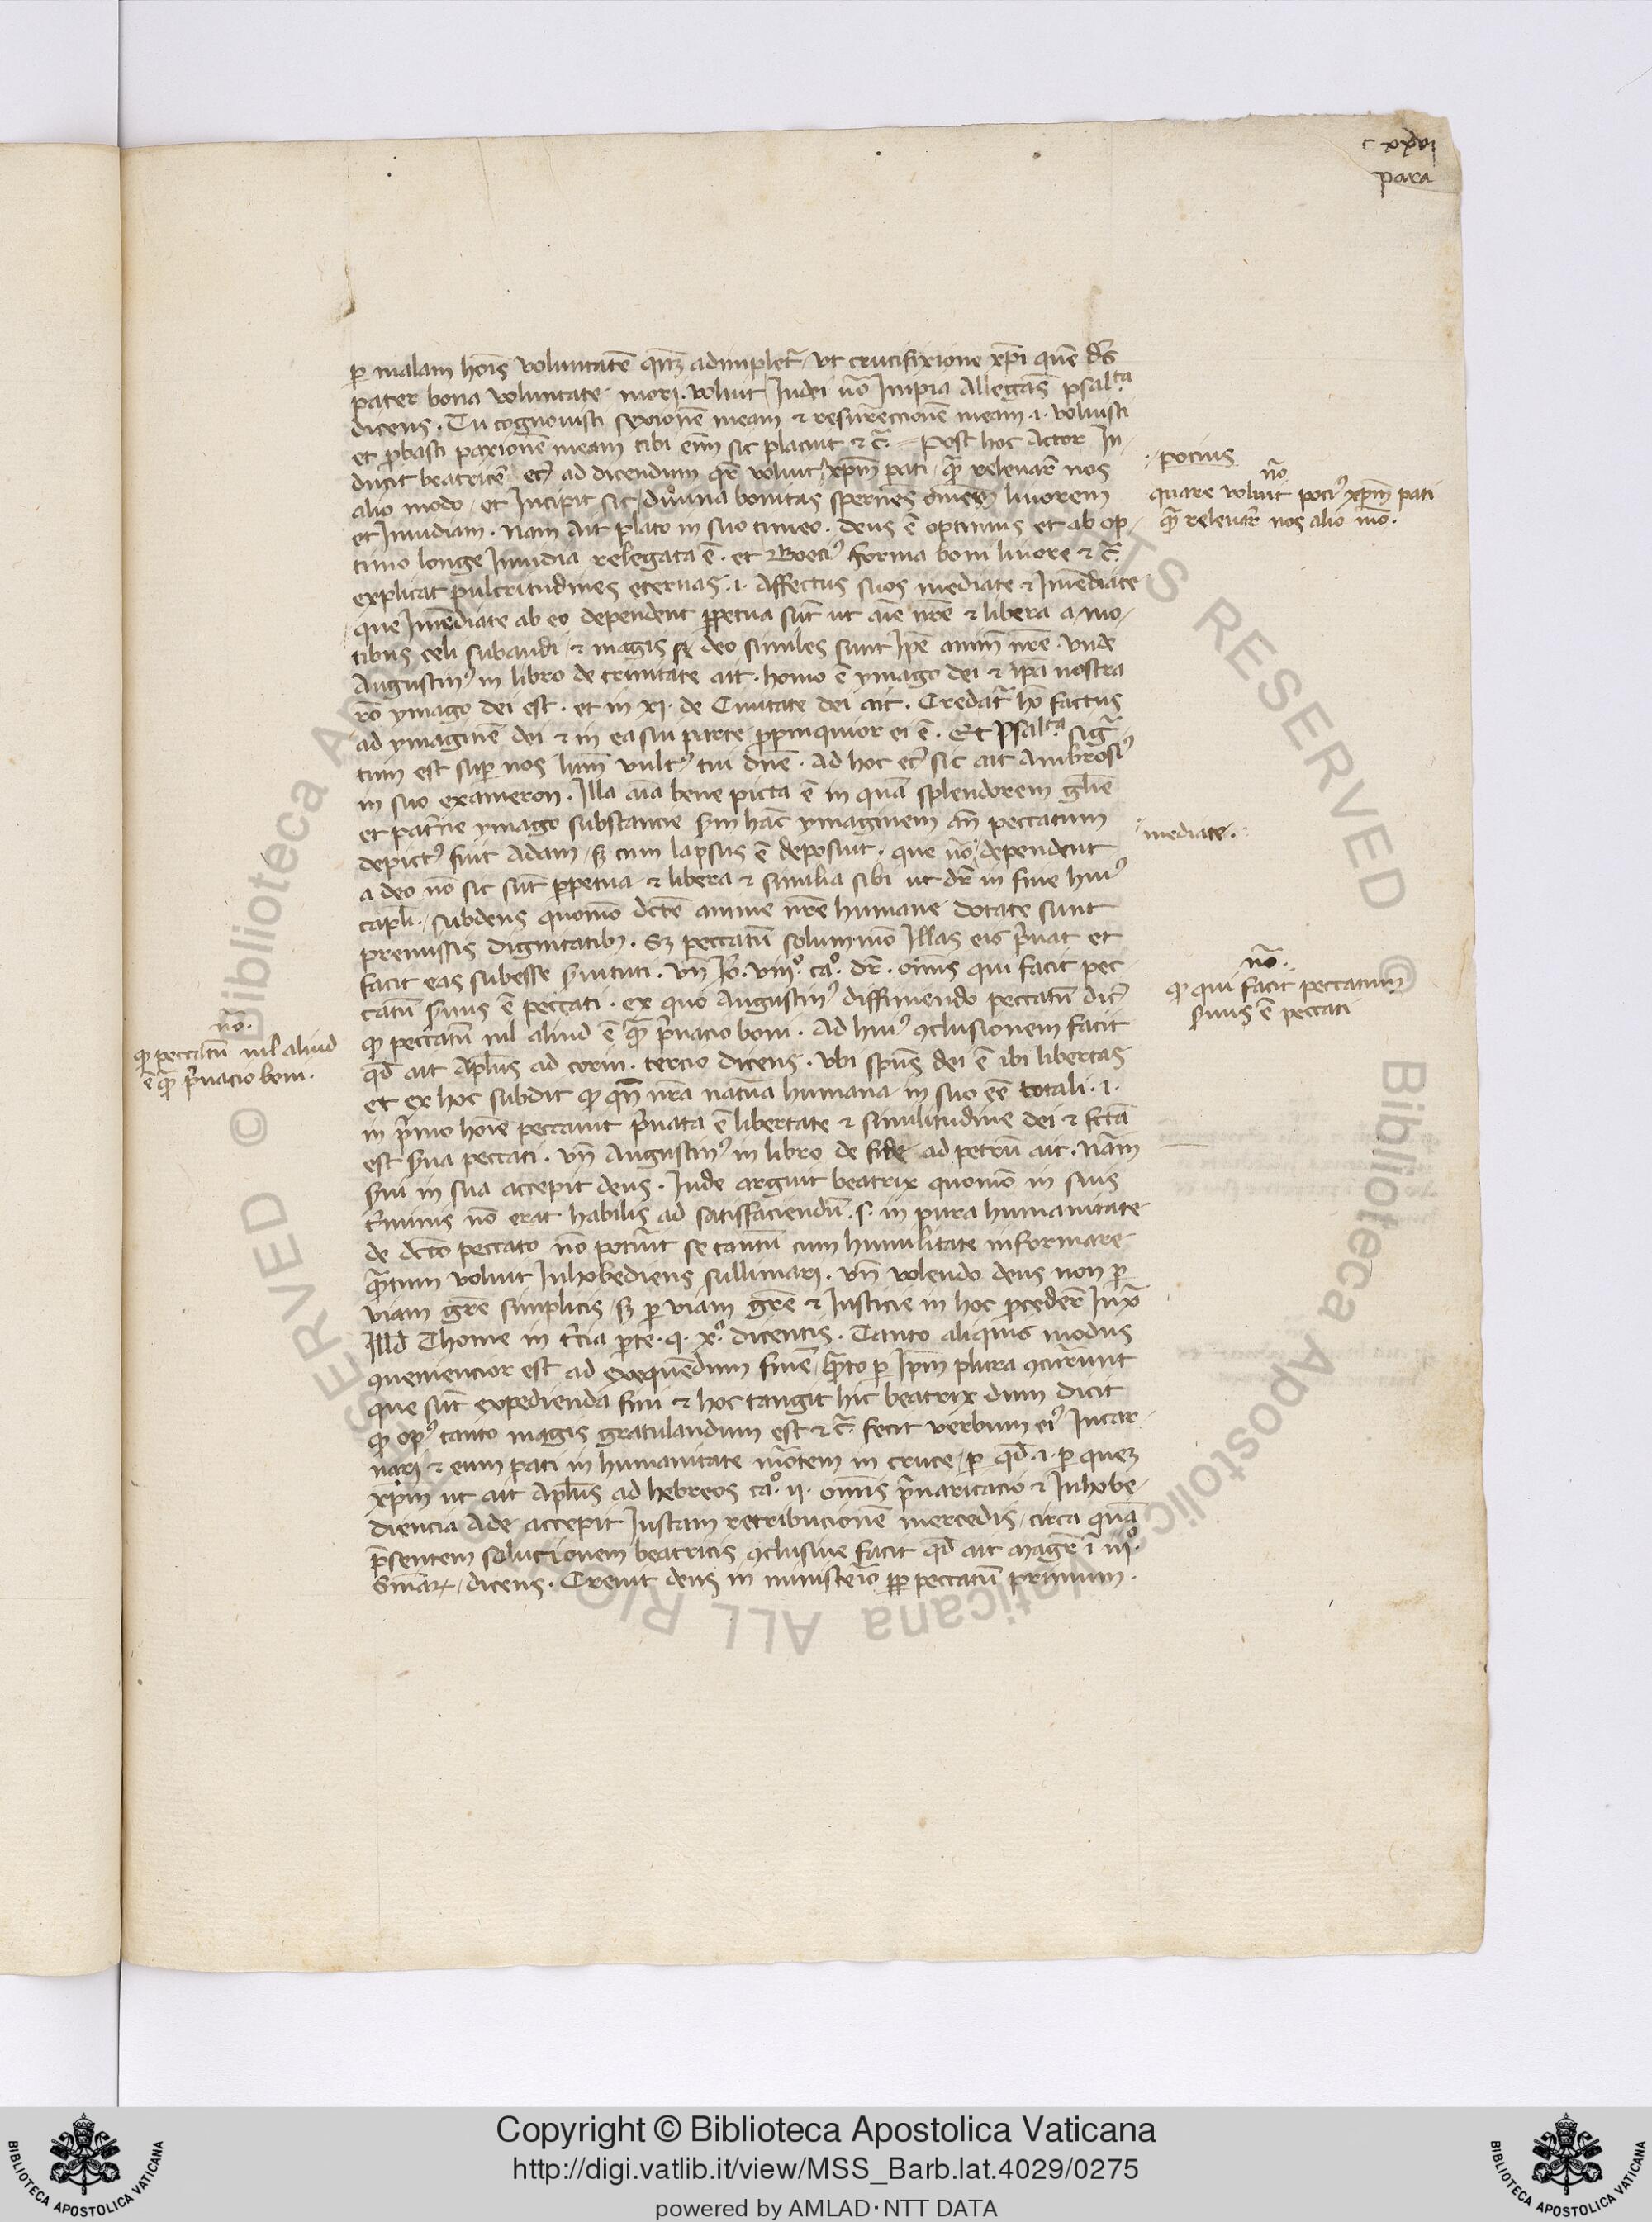 c xxvi
para
ꝑ malam hoīs voluntatē qn̄qꝫ adimplet᷑ / vt crucifixione xp̄i quē d's
pater bona voluntate mori voluit Iudei ūo Impia Allegās psal.ta
dicens . Tu cognouisti sexionē meam ⁊ resurreccionē meam .i. voluisti
et ꝓbasti paxionē meam tibi enī sic placuit ⁊ c̄ . Post hoc Actor In-
ducit beatricē ad dicendum qr̄ voluit xp̄m pati / quā releuar̄ nos
alio modo / et Incipit sic / diuina bonitas spernēs om̄em liuorem
et Inuidiam . Nam Ait plato in suo timeo . deus ē optimus et ab op-
timo longe Inuidia relegata ē . et Boeciꝰ forma boni liuore ⁊ c̄
explicat pulcritudines eternas .i. Affectus suos mediate ⁊ Imēdiate
que Imēdiate ab eo dependent ꝑpetua sūt ut aīe nr̄e ⁊ libera a mo-
tibus celi subaudi ⁊ magis deo similes sunt Ip̄e anim̄ nr̄e . Vnde
Augustinꝰ in libro de trinitate ait . homo ē ymago dei ⁊ ip̄a nostra
rō ymago dei est . et in xi. de Ciuitate dei ait . Credat᷑ hō factus
ad ymaginē dei ⁊ in ea sui parte ꝓpinquior ei ē . Et Psal.ta sig-
tum est suꝑ nos lum̄ vultꝰ tui dn̄e . Ad hoc et̄ sic ait Ambrosiꝰ
in suo exameron . Illa aīa bene picta ē in quā splendorem gl̄ie
et pat̄ne ymago substancie sm̄ hāc ymaginem an̄ peccatum
depictꝰ fuit Adam / sꝫ cum lapsus ē deposuit . que nō dependent
a deo nō sic sūt ꝑpetua ⁊ libera ⁊ similia sibi ut dr̄ in fine huiꝰ
capl̄i . subdens quomō dc̄te anime nr̄e humane dotate sunt
premissis dignitatibꝫ . Sꝫ peccatū solummō Illas eis p̄uat et
facit eas subesse s̄uituti . vn̄ Io. viiiº. caº. dr̄ . om̄is qui facit pec-
catū s̄uus ē peccati . ex quo Augustinꝰ diffiniendo peccatū dic̄
ꝙ peccatū nil aliud ē quā p̄uacio boni . Ad huiꝰ ꝯclusionem facit
qd̄ ait Apl̄us ad corin . tercio dicens . Vbi sp̄us dei ē ibi libertas
et ex hoc subdit ꝙ qn̄ nr̄a natura humana in suo eē totali .i.
in p̄mo hoīe peccauit p̄uata ē libertate ⁊ similitudine dei ⁊ fc̄ta
est s̄ua peccati . vn̄ Augustinꝰ in libro de fide ad petrū ait . Nam
s̄ui in sua accepit deus . Inde arguit beatrix quomō in suis
t̄minis nō erat habilis ad satisfaciendū .s. in pura humanitate
de dc̄to peccato nō potuit se tantū cum humilitate informare
quātum voluit Inhobediens sullimari . vn̄ volendo deus non ꝑ
viam grē simplicis / sꝫ ꝑ viam grē ⁊ Iusticie in hoc ꝓceder̄ Iuxᵃ
Illd̄ Thome in t̄cia ꝑte . q. xº. dicentis . Tanto aliquis modus
ꝯueniencior est ad exequendum finē quāto ꝑ Ip̄m plura ꝯcurrunt
que sūt expedienda fini ⁊ hoc tangit hic beatrix dum dicit
ꝙ opꝰ tanto magis gratulandum est ⁊ c̄ fecit verbum eiꝰ Incar-
nari ⁊ eum pati in humanitate mortem in cruce / ꝑ qd̄ .i. ꝑ quem
xp̄m ut ait Apl̄us ad hebreos caº. ii. om̄is p̄uaricacio ⁊ Inhobe-
diencia Ade accepit Iustam retribucionē mercedis / circa quā
p̄sentem solucionem beatricis ꝯclusiue facit qd̄ ait magr̄ ī iiiº.
dicens . Creuit deus in misterio ꝓp̄ peccatū primum .
pocius
nō
quare voluit pociꝰ xp̄m pati
quā releuar̄ nos alio mō .
mediate .
nō .
ꝙ qui facit peccatum
s̄uus ē peccati
nō .
ꝙ peccatū nil aliud
ē quā p̄uacio boni .
Copyright © Biblioteca Apostolica Vaticana
http://digi.vatlib.it/view/MSS_Barb.lat.4029/0275
powered by AMLAD·NTT DATA
BIBLIOTECA APOSTOLICA VATICANA
BIBLIOTECA APOSTOLICA VATICANA
© Biblioteca Apostolica Vaticana ALL RIGHTS RESERVED